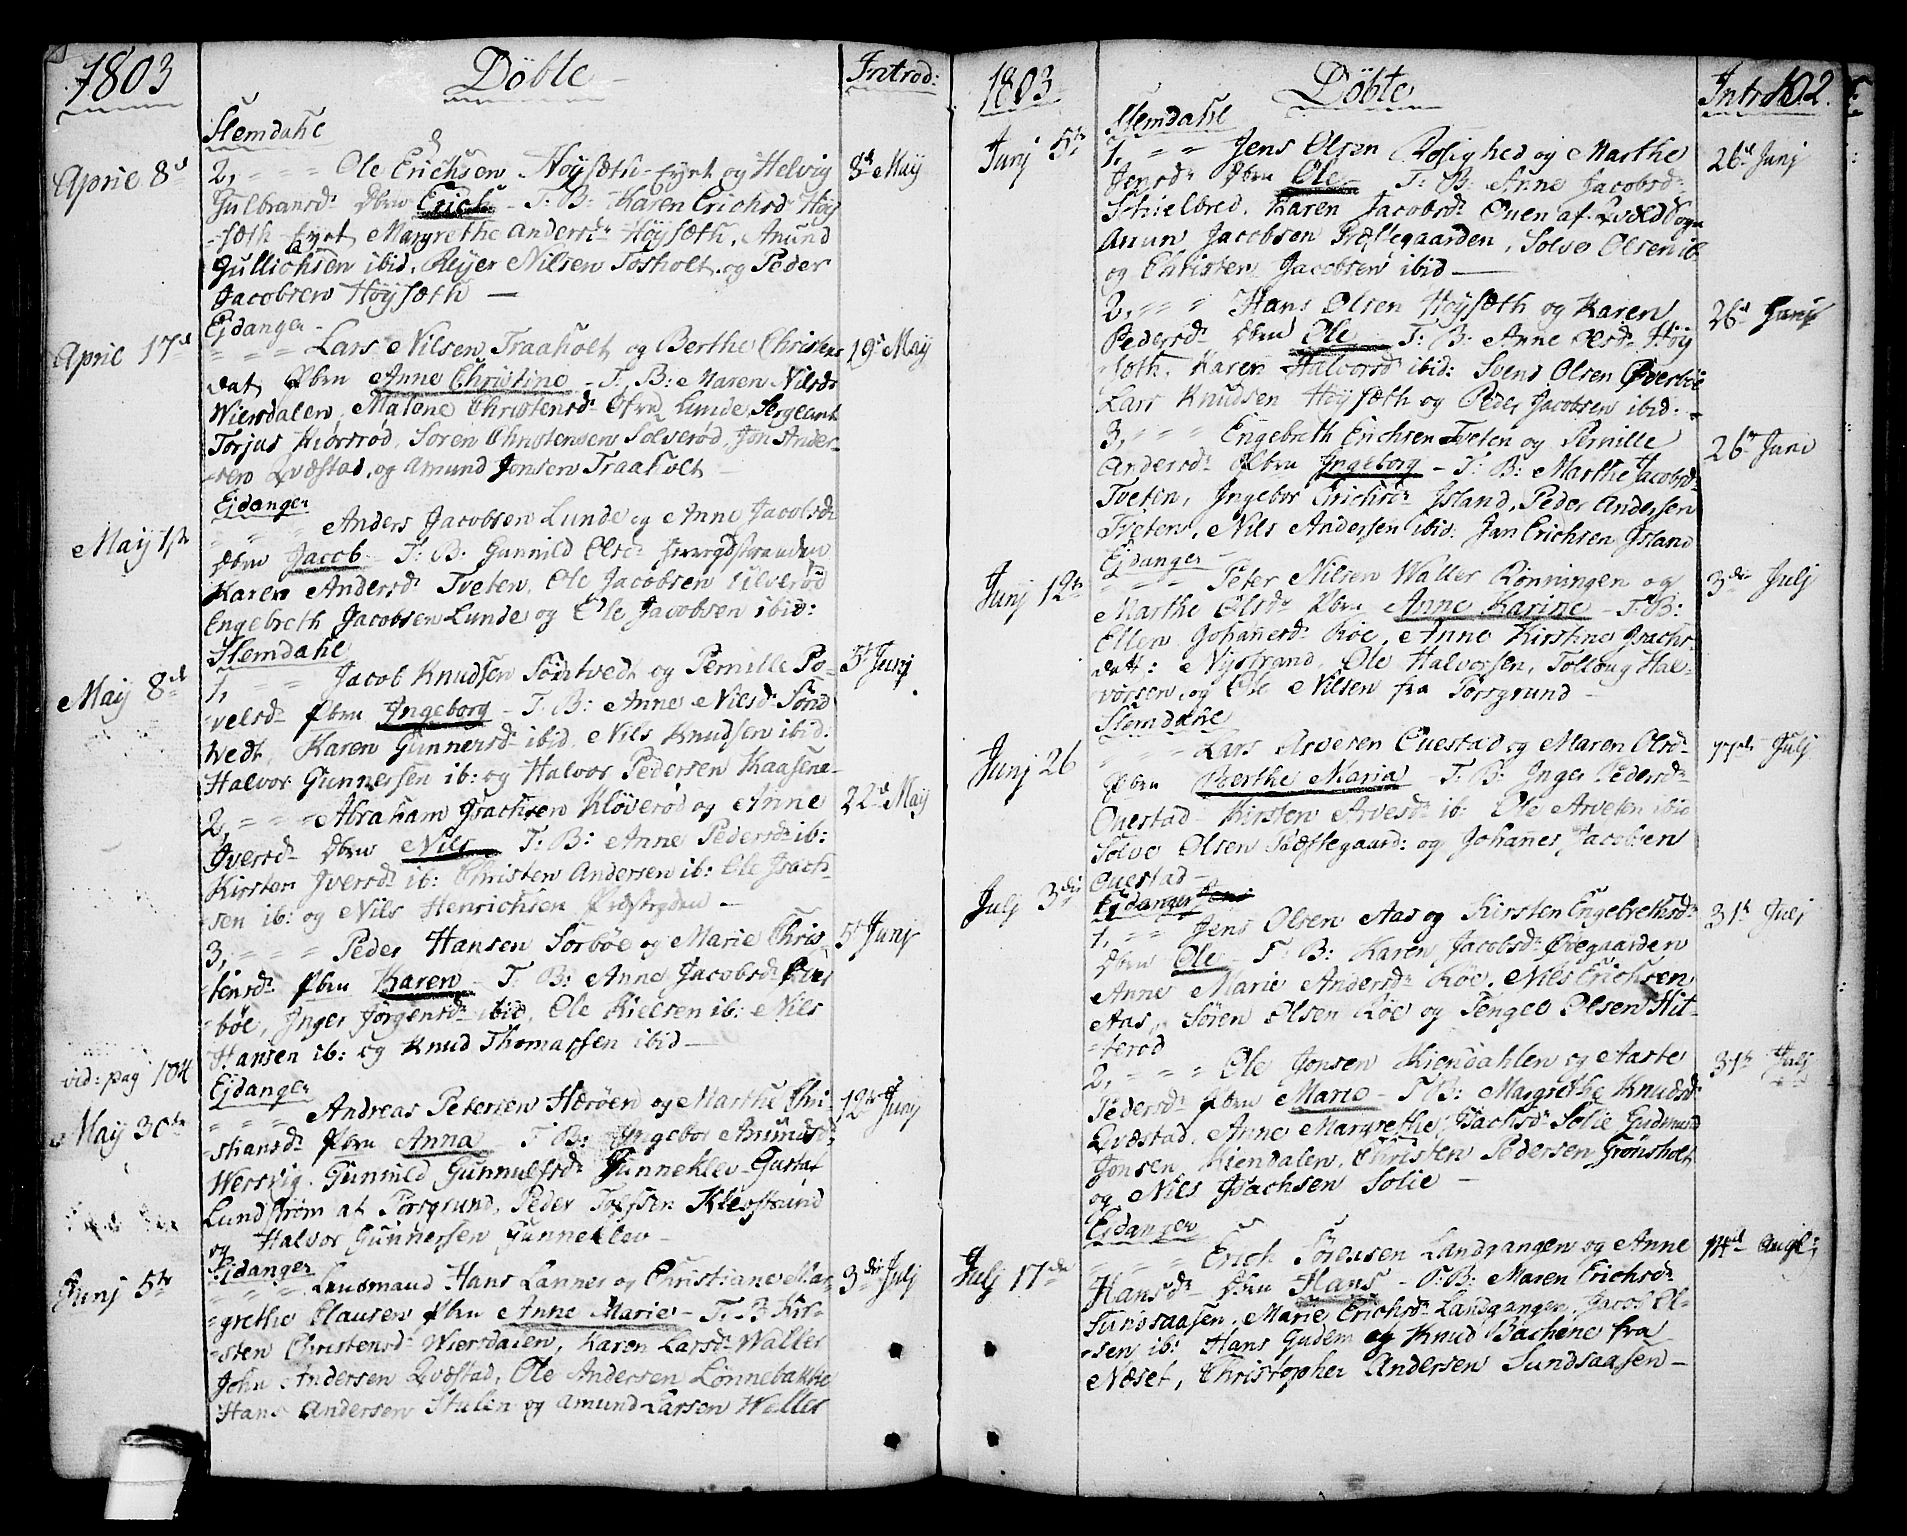 1803
Döbte
Introd:
Slemdahl
April 8d
2, Ole Erichsen Höysæth-Eyet og Helvig
8d May
Gulbransdr Dbn Erich - T: B: Karen Erichsd Höy
-sæth Eyet Margrethe Andersdr Höysæth, Anund
Gullichsen ibid, Reyer Nilsen Tosholt, og Peder
Jacobsen Höysæth
Ejdanger
April 17d
Lars Nilsen Traaholt og Berthe Christens
19d May
dat, Dbn Anne Christine - T, B: Maren Nilsdr
Wiersdalen, Malene Christensdr Lunde, Sergeant
Torjus Kiörsrød, Soren Christensen Solverød, Jon Ander-
-sen Qvæstad, og Amund Jonsen Traaholt
Ejdanger
May 1st
Anders Jacobsen Lunde og Anne Jacobsdr
Dbn Jacob - T: B: Gunnild Olsdr
Karen Andersdr Tveten, Ole Jacobsen Silverød
Engebreth Jacobsen Lunde og Ole Jacobsen ibid:
Slemdahl
May 8d
1, Jacob Knudsen Söndtvedt og Pernille Po-
5t Junj
-velsdr Pbn Ingeborg - T: B: Anne Nilsdr Sönd
Wedt, Karen Gunnersdr ibid, Nils Knudsen ibid:
Halvor Gunnersen ib: og Halvor Pedersen Kaasene-
2, Abraham Isachsen Klöverød og Anne
22d May
Iversdr Dbn Nils T: B: Anne Pedersdr ib:
Kirsten Iversdr ib: Christen Andersen ib: Ole Isach-
sen ib: og Nils Henrichsen
3, Peder Hansen Sorböe og Marie Chris
5t Junj
-tensdr Pbn Karen - T: B: Anne Jacobsdr Över
-böe, Inger Jörgensdr ibid, Ole Nielsen ib: Nils
Hansen ib: og Knud Thomassen ibid
vid: pag 104
Ejdanger
May 30te
Andreas Petersen Herøen og Marthe Chri-
12te Junj
-stiansdr Pbn Anna - T: B: Ingebor Amundsdr
Wersvig, Gunnild Gunnulfsdr Gunneklev Gustaf
Lundström at Porsgrund, Peder Tolfsen Kleostrand
og Halvor Gunnersen Gunneklev
Ejdanger
Junj 5te
Lensmand Hans Lanner og Christiane Mar-
3die Julj
-grethe Clausen Pbn Anne Marie - T: B: Kir-
-sten Christensdr Wiersdalen, Karen Larsdr Waller
John Andersen Qvæstad, Ole Andersen Lönnebakke
Hans Andersen Stulen og Amund Larsen Waller
1803
Döbte
Introd:
102.
Slemdahl
Junj 5te
1, Jens Olsen Rolighed og Marthe
26d Junj
Jensdr Dbn Ole - T: B: Anne Jacobsdr
Skielbred, Karen Jacobsdr Ouen af Qveldsogn
Anun Jacobsen Præstegaarden, Solve Olsen ib
og Christen Jacobsen ibid
2, Hans Olsen Höysæth og Karen
26d Junj
Pedersdr Dbn Ole T: B: Anne Olsdr Höy
sæth, Karen Halvorsdr ibid: Svend Olsen Överböe
Lars Knudsen Höysæth og Peder Jacobsen ibid:
3, Engebreth Erichsen Tveten og Pernille
26de Juni
Andersdr Pbn Ingeborg - T: B: Marthe Jacobsdr
Tveten, Ingebor Erichsdr Island, Peder Andersen
Tveten, Nils Andersen ibid: Jan Erichsen Island
Ejdanger
Junj 12te
Peter Nilsen Waller Rönningen og
3die Julj
Marthe Olsdr Pbn Anne Karine - T: B:
Ellen Johannesdr Röe, Anne Kirstine Isachs-
datt: Nystrand, Ole Halvorsen, Tolloug Hal-
vorsen, og Ole Nilsen fra Porsgrund
Slemdahl
Junj 26
Lars Arvesen Ouestad og Maren Olsdr
17de Julj
Pbn Berthe Maria - T: B: Inger Pedersdr
Ouestad - Kirsten Arvesdr ib: Ole Arvesen ibid
Solve Olsen Præstegaard: og Johannes Jacobsen
Ouestad
Julj 3die
Ejdanger
1, Jens Olsen Aas og Kirsten Engebrethsdr
31te Julj
Dbn Ole - T: B: Karen Jacobsdr Övegaarden
Anne Marie Andersdr Röe, Nils Erichsen
Aas, Sören Olsen Röe og Tengel Olsen Hit-
terød
2, Ole Jonsen Kiendahlen og Aaste
31te Julj
Pedersdr Pbn Marie - T: B: Margrethe Knudsdr
Qvæstad, Anne Margrethe Isachsdr Solie Gudmund
Jonsen Kiendalen, Christen Pedersen Grönsholt
og Nils Isachsen Solie
Ejdanger
Julj 17de
Erich Sörensen Landgangen og Anne
14de Augl:
Hansdr Dbn Hans - T: B: Maren Erichsdr
Sundsaasen, Marie Erichsdr Landgangen, Jacob Ol-
-sen ib: Hans Gudem og Knud Bachene fra
Næset, Christopher Andersen Sundsaasen